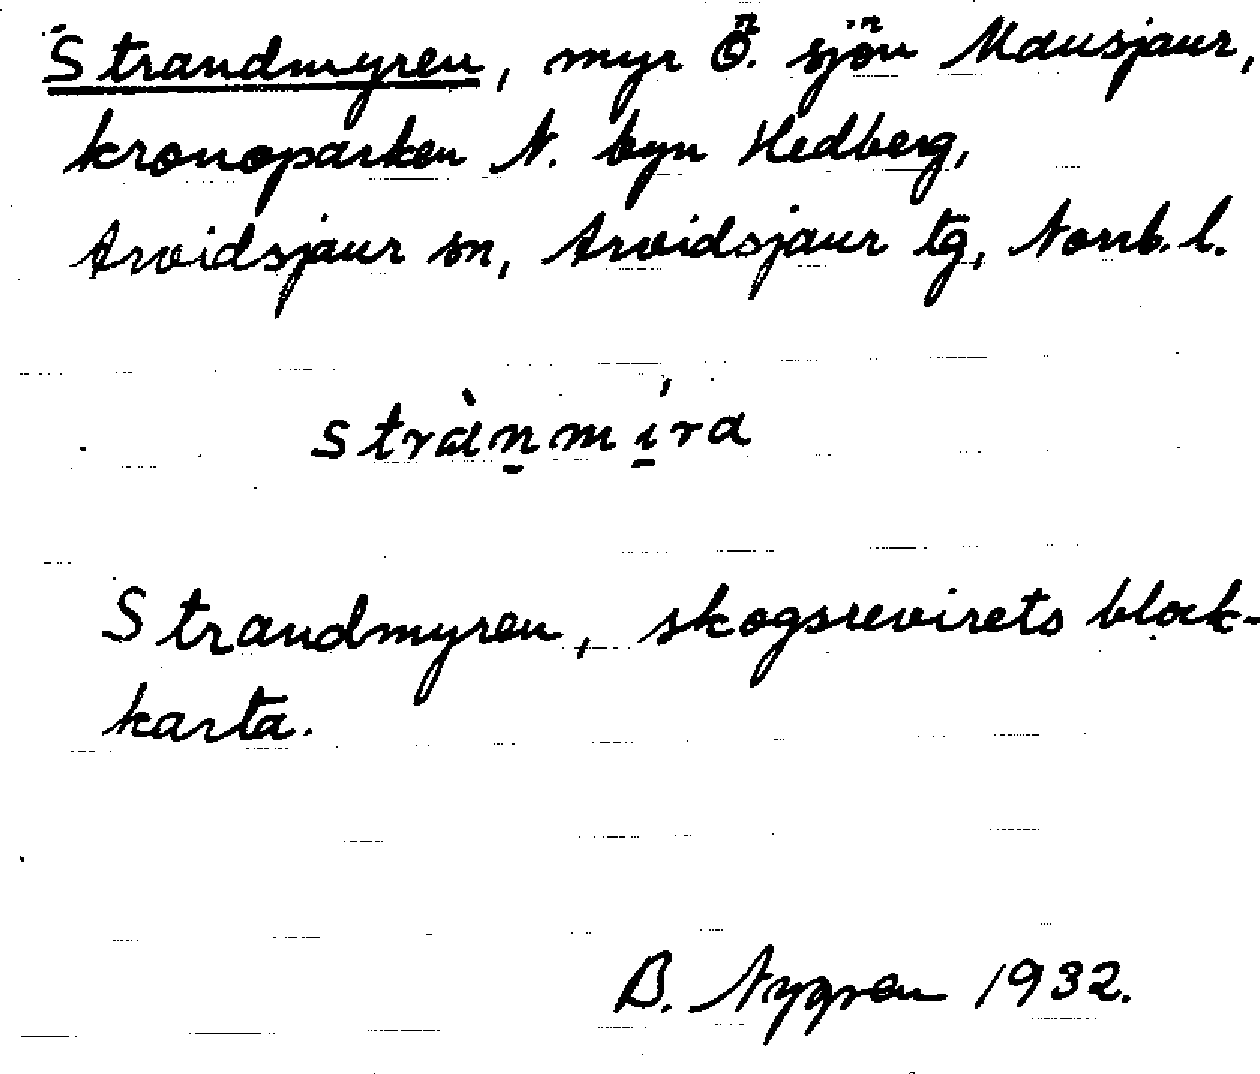 Strandmyren, myr Ö. sjön Mausjaur,
kronoparken N. byn Hedberg,
Arvidsjaur sn, Arvidsjaur tg, Norrb. l.
stràṉmí̱ra
Strandmyren, skogsrevirets block-
karta.
B. Nygren 1932.